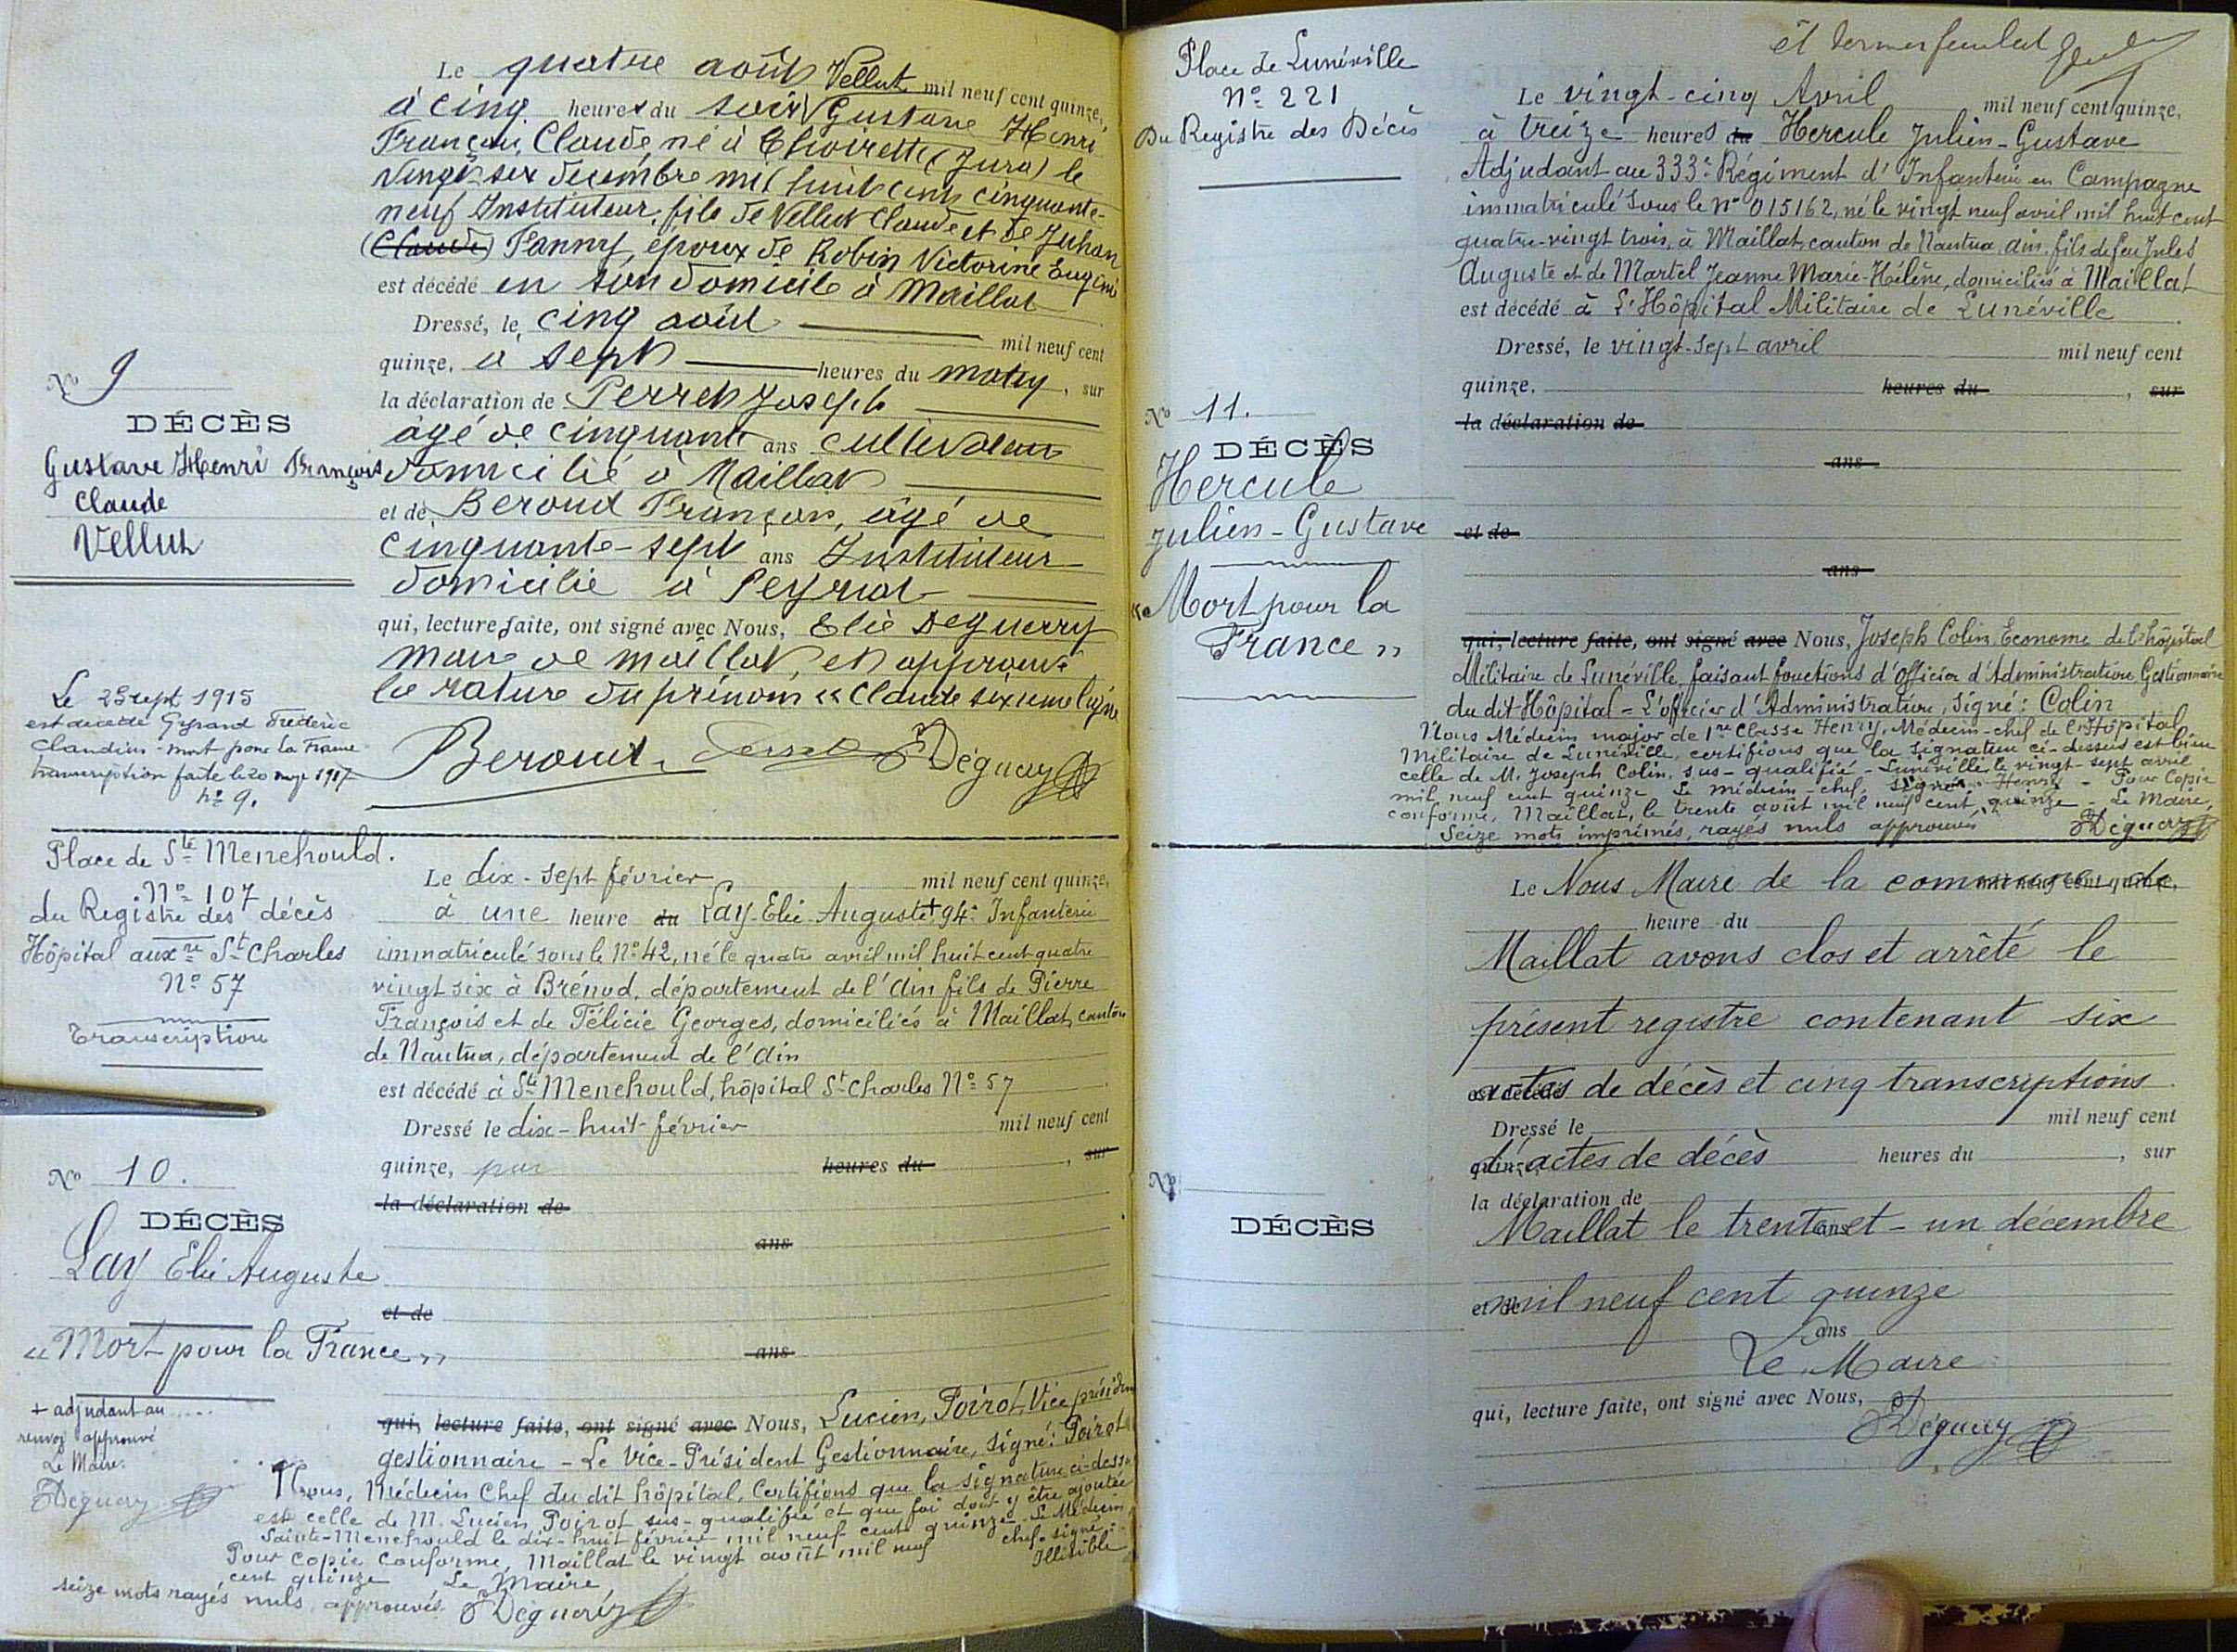 Le quatre août Vellut mil neuf cent quinze,
à cinq heures du soir Gustave Henri
François Claude, né à Thoirette (Jura) le
vingt six décembre mil huit cent cinquante-
neuf Instituteur, fils de Vellut Claude et de Juhan
(Claude) Fanny, époux de Robin Victorine Eugénie
est décédé en son domicile à Maillat
Dressé, le cinq août mil neuf cent
quinze, à sept heures du matin, sur
la déclaration de Perret Joseph
âgé de cinquante ans cultivateur
domicilié à Maillat
et de Beroud François, âgé de
cinquante-sept ans Instituteur
domicilié à Peyriat
qui, lecture faite, ont signé avec Nous, Elie Deguerry
maire de maillat, et approuvé
la rature du prénom "Claude sixième ligne
Beroud Perret EDéguery
No 9
DÉCÈS
Gustave Henri François
Claude
Vellut
Le 2 Sept 1915
est décédé Frédéric
Claudius - mort pour la France
transcription faite le 20 1917
no 9.
Place de Ste Menehould.
No 107
du Registre des décès
Hôpital auxre St Charles
No 57
Transcription
No 10.
DÉCÈS
Lay Elie Auguste
"Mort pour la France"
+ adjudant au....
renvoi approuvé
Le Maire.
EDéguery
Le dix-sept février mil neuf cent quinze,
à une heure du Lay Elie Auguste + 94e Infanterie
immatriculé sous le No 42, né le quatre avril mil huit cent quatre
vingt six à Brénod, département de l'Ain fils de Pierre
François et de Félicie Georges, domiciliés à Maillat, canton
de Nantua, département de l'Ain
est décédé à Ste Menehould, hôpital St Charles No 57
Dressé le dix-huit février mil neuf cent
quinze, par heures du , sur
la déclaration de
ans
et de
ans
qui, lecture faite, ont signé avec Nous, Lucien, Poirot, Vice président
gestionnaire - Le Vice-Président Gestionnaire, signé: Poirot
Nous, Médecin Chef du dit hôpital, Certifions que la signature ci-dessus
est celle de M. Lucien Poirot sus-qualifié et que foi doit y être ajoutée
Sainte-Menehould le dix-huit février mil neuf cent quinze - Le Médecin
chef - signé:
Illisible
Pour copie conforme, Maillat le vingt août mil neuf
cent quinze Le Maire
seize mots rayés nuls, approuvés. EDéguery
Place de Lunéville
No 221
Du Registre des Décès
No 11.
DÉCÈS
Hercule
Julien-Gustave
"Mort pour la
France"
et dernier feuillet
Le vingt-cinq Avril mil neuf cent quinze,
à treize heures du Hercule Julien-Gustave
Adjudant au 333e Régiment d'Infanterie en Campagne
immatriculé sous le no 015162, né le vingt neuf avril mil huit cent
quatre-vingt trois, à Maillat, canton de Nantua, Ain, fils de feu Jules
Auguste et de Martel Jeanne Marie-Hélène, domiciliés à Maillat
est décédé à L'Hôpital Militaire de Lunéville
Dressé, le vingt-sept avril mil neuf cent
quinze. heures du , sur
la déclaration de
ans
et de
ans
qui, lecture faite, ont signé avec Nous, Joseph Colin, Econome de l'hôpital
Militaire de Lunéville, faisant fonctions d'officier d'Administration Gestionnaire
du dit Hôpital - L'officier d'Administration, signé: Colin
Nous Médecin major de 1re Classe Henry, Médecin-chef de l'Hôpital
Militaire de Lunéville, certifions que la signature ci-dessus est bien
celle de M. Joseph Colin, sus-qualifié - Lunéville, le vingt-sept avril
mil neuf cent quinze Le médecin-chef, signé: Henry - Pour Copie
conforme, Maillat, le trente août mil neuf cent quinze - Le Maire,
Seize mots imprimés, rayés nuls approuvés EDéguery
Le Nous Maire de la commune de mil neuf cent quinze,
heure du
Maillat avons clos et arrêté le
présent registre contenant six
est décédé actes de décès et cinq transcriptions
Dressé le mil neuf cent
quinze, d'actes de décès heures du , sur
la déclaration de
Maillat le trente et-un décembre ans
et de mil neuf cent quinze
ans
Le Maire
qui, lecture faite, ont signé avec Nous,
EDéguery
No
DÉCÈS